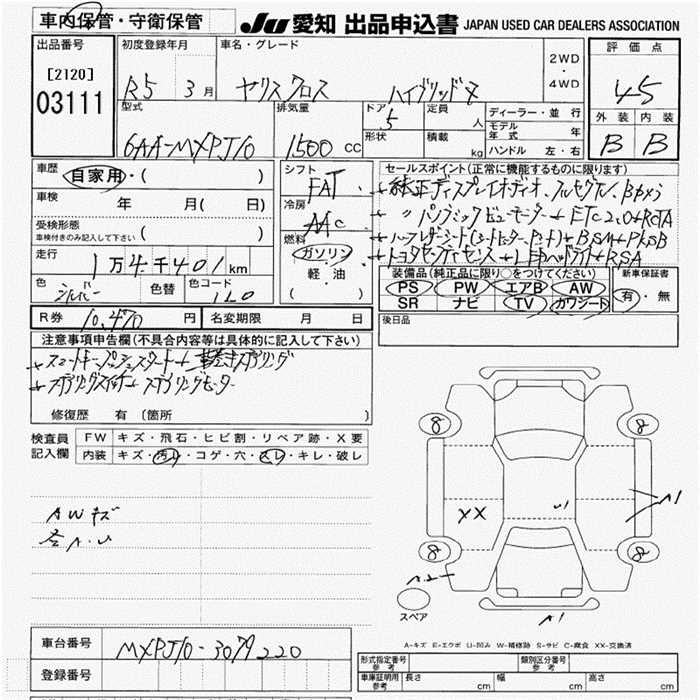 車内保管・守衛保管
JU 愛知 出品申込書 JAPAN USED CAR DEALERS ASSOCIATION
出品番号
[2120]
03111
初度登録年月
R5 3月
車名・グレード
ヤリスクロス ハイブリッドZ
2WD
・
4WD
評価点
45
外装 内装
B B
型式
6AA-MXPJ10
排気量
1500 CC
ドア
5
形状
定員 人
積載 kg
ディーラー・並行
モデル年式 年
ハンドル 左・右
車歴
自家用・( )
車検 年 月( 日)
受検形態
車検付きのみ記入して下さい
( )
走行
1万4千401km
色
シルバー
色替
色コード
1L0
シフト
FAT
冷房
AAC
燃料
ガソリン
・
軽油
( )
セールスポイント(正常に機能するものに限ります)
+純正ディスプレイオディオ、フルセグTV、Bカメラ
+ 〃 パノラミックビューモニター+ETC2.0+RCTA
+ハーフレザーシート(シートヒーター、パワーシート)+BSM+PKSB
+トヨタセーフティセンス+LEDヘッドライト+RSA
装備品(純正品に限り○をつけてください)
PS PW エアB AW
SR ナビ TV カワシート
新車保証書
有・無
後日品
R券 10,470円
名変期限 月 日
注意事項申告欄(不具合内容等は具体的に記入して下さい)
+スマートキー、プッシュスタート+革巻きステアリング
+ステアリングスイッチ+ステアリングヒーター
修復歴 有 (箇所 )
検査員
記入欄
FW キズ・飛石・ヒビ割・リペア跡・X要
内装 キズ・汚レ・コゲ・穴・スレ・キレ・破レ
AWキズ
各A.U
8
8
8
8
XX
U1
A1
A2
A1
スペア
A-キズ E-エクボ U-凹み W-補修跡 S-サビ C-腐食 XX-交換済
車台番号 MXPJ10-3079220
登録番号
形式指定番号
参考
類別区分番号
参考
車庫証明用
参考
長さ cm
幅 cm
高さ cm